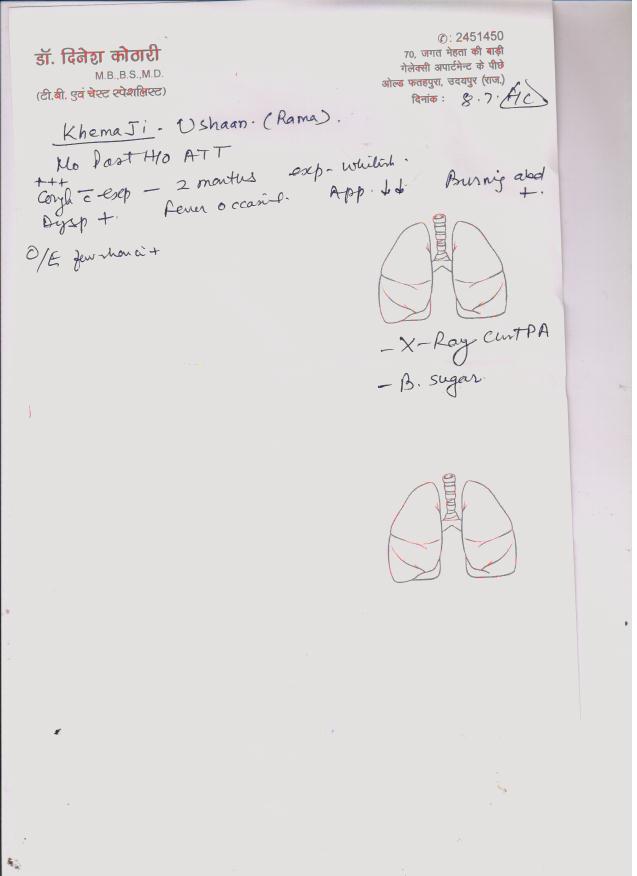 डॉ. दिनेश कोठारी
M.B.,B.S.,M.D.
(टी.बी. एवं चेस्ट स्पेशलिस्ट)
✆: 2451450
70, जगत मेहता की बाड़ी
गेलेक्सी अपार्टमेन्ट के पीछे
ओल्ड फतहपुरा, उदयपुर (राज.)
दिनांक : 8.7.
KhemaJi - Ushaan. (Rama).
No Past H/o ATT
+++
Cough c̄ exp — 2 months exp - whitish. Burning abd +.
Dysp +. Fever occasinl. App. ↓↓
O/E few rhonchi +
- X-Ray Chest PA
- B. sugar.